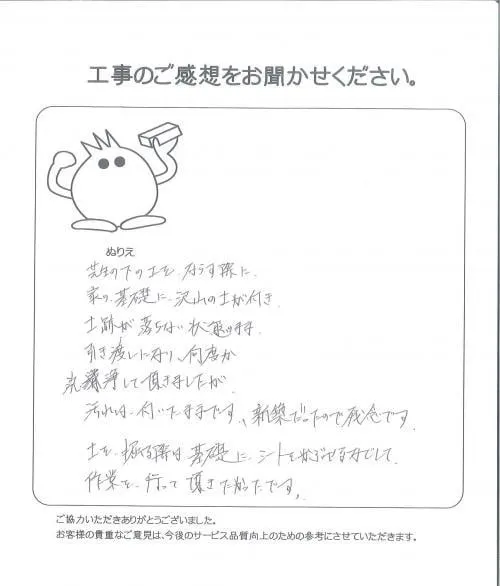 工事のご感想をお聞かせください。
ぬりえ
芝生の下の土を、ならす際に、
家の、基礎に、沢山の土が付き、
土跡が落ちない状態のまま、
引き渡しになり、何度か
洗浄して頂きましたが、
汚れは、付いたままです。新築だったので残念です。
土を、掘る際は、基礎に、シートをかぶせるなどして、
作業を、行って頂きたかったです。
ご協力いただきありがとうございました。
お客様の貴重なご意見は、今後のサービス品質向上のための参考にさせていただきます。